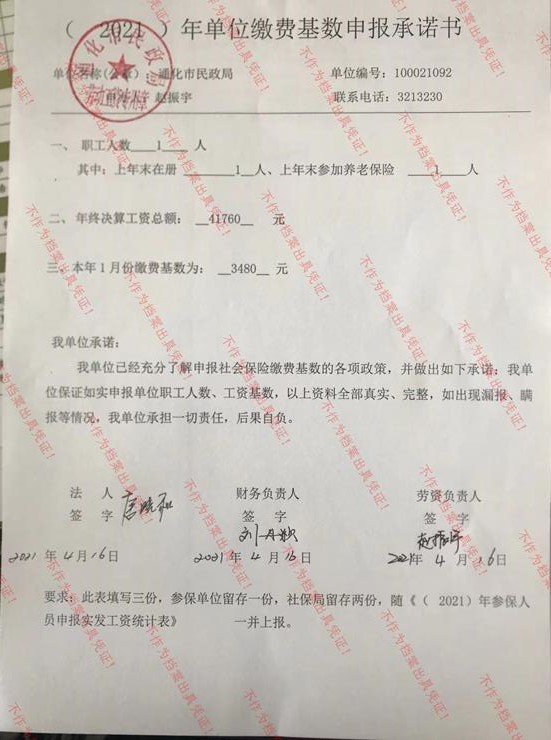 （ 2021 ）年单位缴费基数申报承诺书
单位名称(公章) 通化市民政局 单位编号：100021092
申报人：赵振宇 联系电话：3213230
一、 职工人数__1____ 人
其中：上年末在册 ______1__人、上年末参加养老保险 ____1____人
二、年终决算工资总额：__41760__ 元
三、本年1月份缴费基数为：__3480__ 元
我单位承诺：
我单位已经充分了解申报社会保险缴费基数的各项政策，并做出如下承诺：我单
位保证如实申报单位职工人数、工资基数，以上资料全部真实、完整，如出现漏报、瞒
报等情况，我单位承担一切责任，后果自负。
法 人 财务负责人 劳资负责人
签 字 签 字 签 字
赵振宇
2021 年 4 月 16 日 2021 年 4 月 16 日 2021年 4 月 16日
要求：此表填写三份，参保单位留存一份，社保局留存两份，随《（ 2021）年参保人
员申报实发工资统计表》 一并上报。
通化市民政局
不作为档案出具凭证！